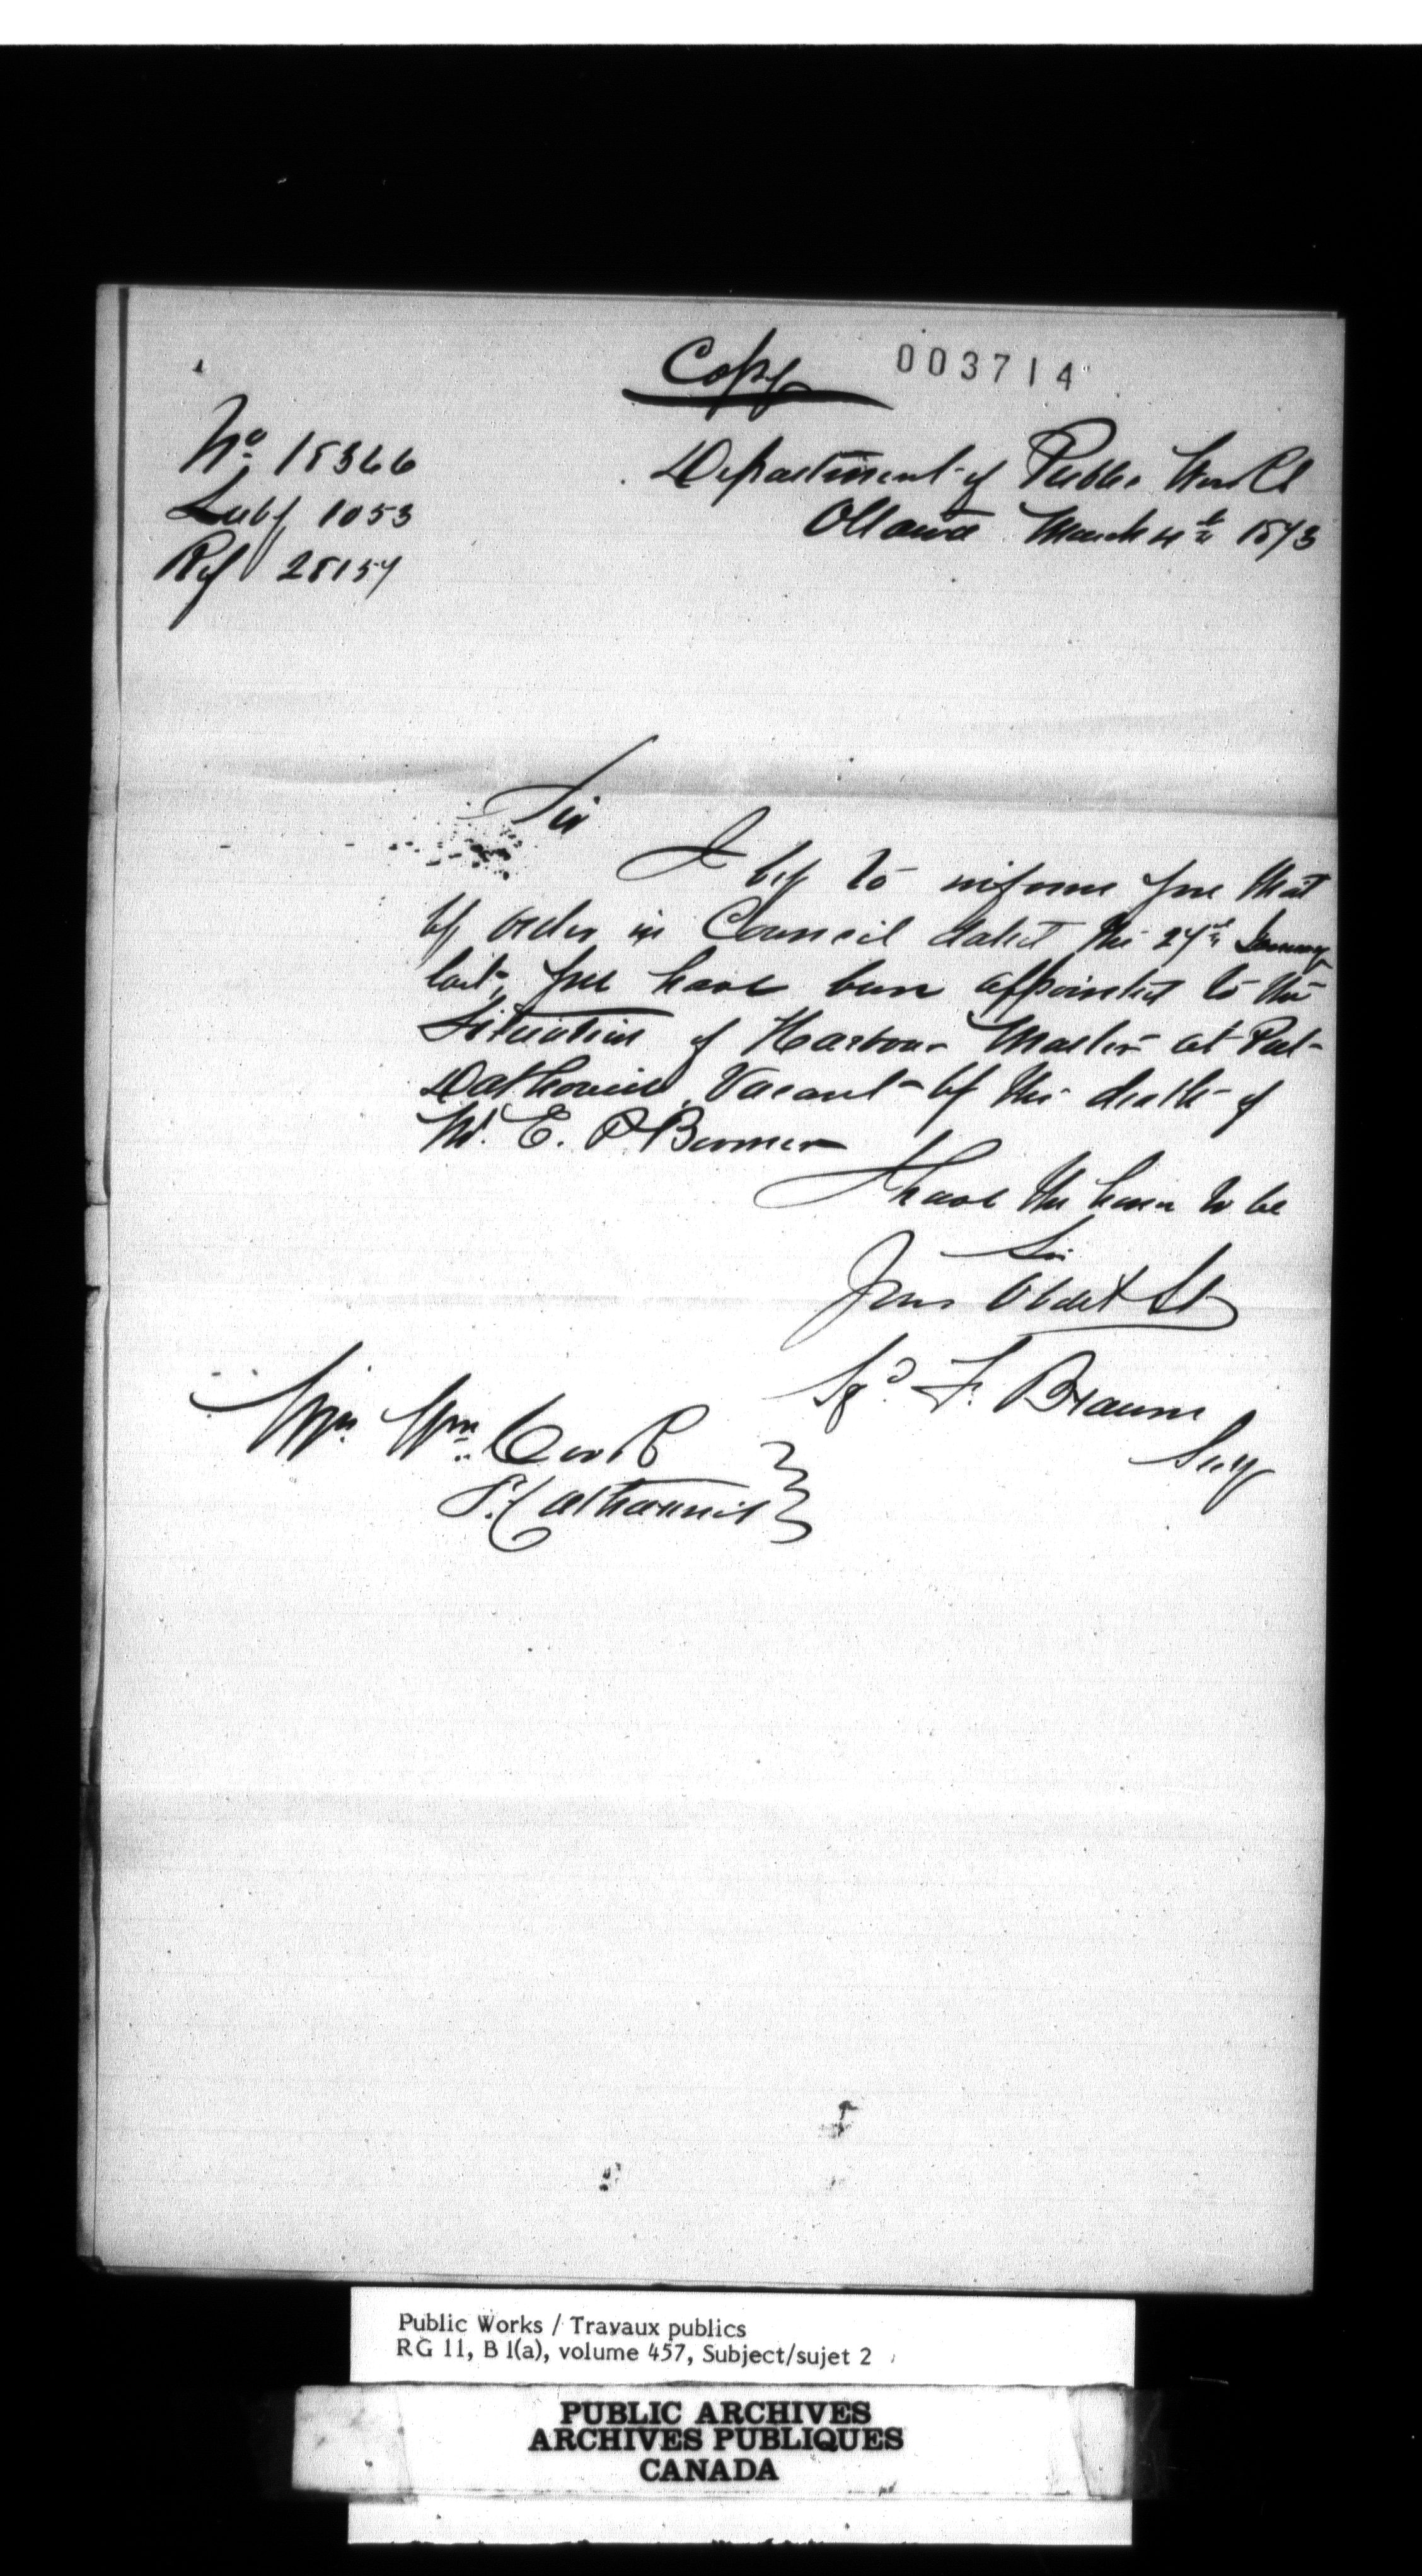 Copy 003714
No 18366
Subj 1053
Ref 28157
Department of Public Works
Ottawa March 4th 1873
Sir
I beg to inform you that
by order in Council dated the 27th January
last, you have been appointed to the
Situation of Harbour Master at Port
Dalhousie, Vacant by the death of
Mr. E. P. Bonner
I have the honor to be
Sir
Your Obdt St
Sgd. F. Braun
Secy
Wm. Cook
St Catharines
Public Works / Travaux publics
RG 11, B 1(a), volume 457, Subject/sujet 2
PUBLIC ARCHIVES
ARCHIVES PUBLIQUES
CANADA